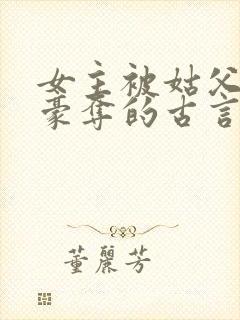 女主被姑父
豪夺的古言
董丽芳